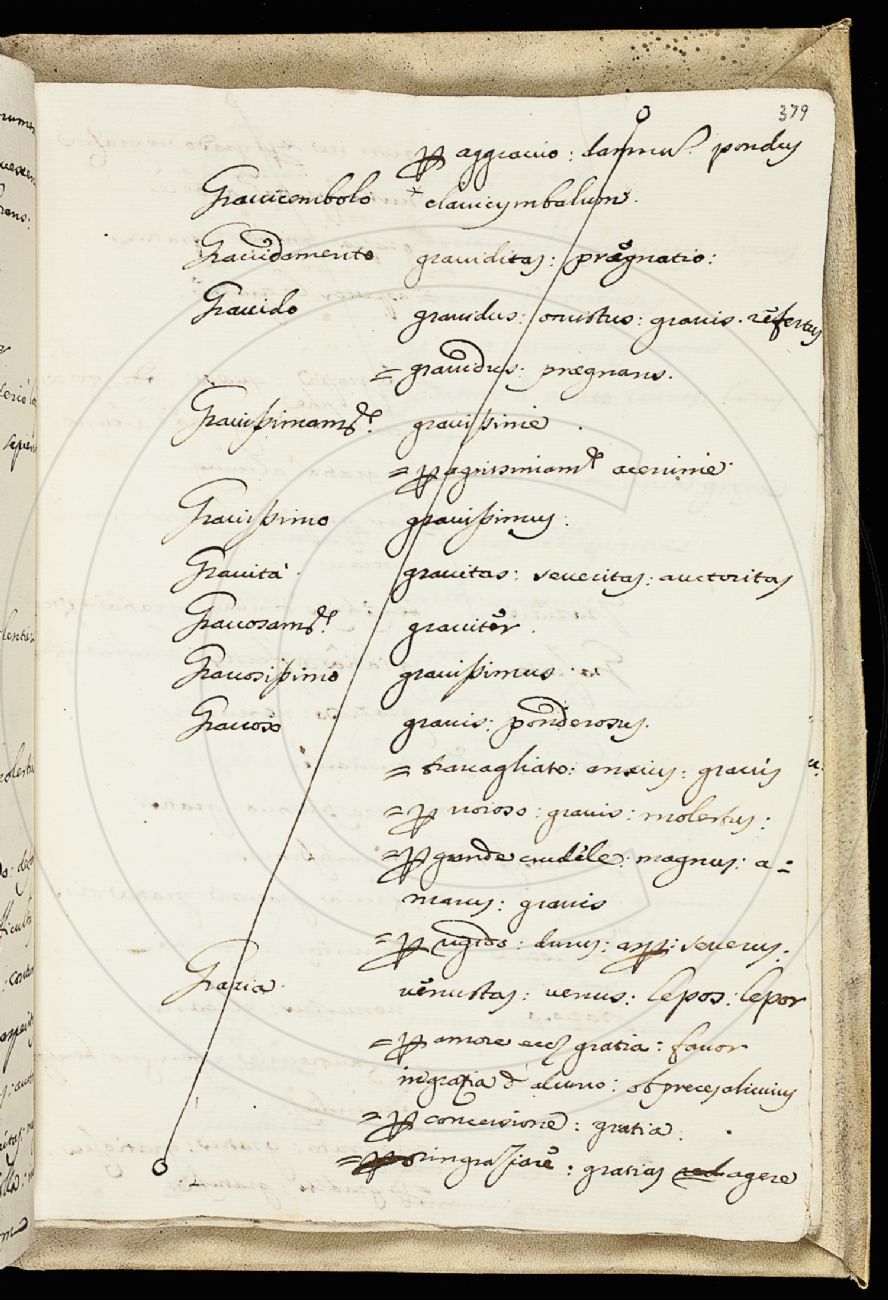 379
ꝑ aggrauio: damnu. pondus
Grauicembolo * clauicymbalum.
Grauidamento grauiditas: prægnatio:
Grauido grauidus: onustus: grauis. refertus
= grauidus: prægnans.
Grauißimam.te grauißime.
= ꝑ agrissimam.te acerrime.
Grauißimo grauißimus:
Grauità grauitas: seueritas: auctoritas
Grauosam.te grauiter.
Grauosißimo grauißimus
Grauoso grauis: ponderosus.
= trauagliato: anxius: grauis
= ꝑ noioso: grauis: molestus:
= ꝑ grande crudele: magnus: a=
marus: grauis
= ꝑ rigido: durus: asp: seuerus.
Grazia. uenustas: uenus: lepos: lepor
= ꝑ amore ecc gratia: fauor
in grazia d' alcuno: ob preces alicuius
= ꝑ concessione: gratia.
= ringraziare: gratias agere